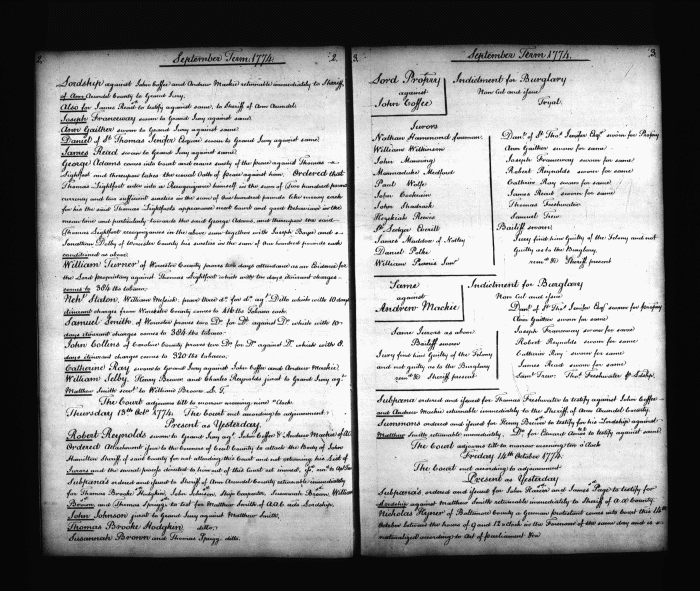 2. September Term 1774. 2.
Lordship against John Coffee and Andrew Mackie returnable immediately to Sheriff
of Ann Arundel County to Grand Jury.
Also for James Read to testify against same, to Sheriff of Ann Arundel.
Joseph Franceway sworn to Grand Jury against same
Ann Gaither sworn to Grand Jury against same
Daniel of St Thomas Jenifer Esquire sworn to Grand Jury against same
James Read sworn to Grand Jury against same
George Adams comes into Court and craves surety of the peace against Thomas
Lightfoot and thereupon takes the usual Oath of peace against him. Ordered that
Thomas Lightfoot enter into a Recognizance himself in the sum of One hundred pounds
currency and two sufficient sureties in the sum of One hundred pounds like money each
for his the said Thomas Lightfoots appearance next Court and good Behaviour in the
mean time and particularly towards the said George Adams, and thereupon the said
Thomas Lightfoot recognizances in the above sum together with Joseph Boyd and
Jonathan of Worcester County his sureties in the sum of One hundred pounds each
conditioned as above
William Turner of Worcester County proves two days attendance as an Evidence for
the Lord proprietary against Thomas Lightfoot which with ten days itinerant charges
comes to 384 lbs tobacco.
William proves for do agt Ditto which with 10 days
itinerant charges from Worcester County comes to 416 lbs Tobacco each.
Samuel Smith of Worcester proves two Ds for Do against Do which with 10
days itinerant charges comes to 384 lbs tobacco
John Collins of Caroline County proves two Ds for Do against Do which with 8
days itinerant charges comes to 320 lbs tobacco.
Catharine Ray sworn to Grand Jury against John Coffee and Andrew Mackie
William Selby, Henry Brown and Charles Reynolds jurat to Grand Jury agt
Matthew Smith sent to William Brown
The Court adjourns till to morrow morning nine oClock.
Thursday 13th Octr 1774. The Court met according to adjournment
Present as Yesterday.
Robert Reynolds sworn to Grand Jury agt John Coffee & Andrew Mackie of
Ordered Attachment issue to the Coroner of Court County to attach the Body of John
Hamilton Sheriff of said County for not attending this Court and not returning his List of
Jurors and the several process directed to him out of this Court
Subpœna's ordered and issued to Sheriff of Ann Arundel County returnable immediately
for Thomas Brooke Hodgkin, John Johnson, Ship Carpenter, Susannah Brown, William
Brown and Thomas Sprigg to test for Matthew Smith of ads Lordship.
John Johnson jurat to Grand Jury against Matthew Smith.
Thomas Brooke Hodgkin ditto.
Susannah Brown and Thomas Sprigg ditto.
3. September Term 1774. 3.
Lord Propriy
against
John Coffee
Indictment for Burglary
Non Cul and issue
Tryal.
Jurors
Nathan Hammond foreman
William Wilkinson
John Manning
Marmaduke Medford
Paul Wolfe
John Cockerine
John Shadwick
Hezekiah Reeves
St Ledger Everitt
James Maddox of Notley
Daniel Polke
William Purnis Junr
Danl of St Thos Jenifer Esqr sworn for Propriy
Ann Gaither sworn for same
Joseph Franceway sworn for same
Robert Reynolds sworn for same
Catharine Ray sworn for same
James Read sworn for same
Thomas Freshwater
Samuel Trew
Bailiff sworn
Jury find him Guilty of the Felony and not
Guilty as to the Burglary.
Sheriff present
Same
against
Andrew Mackie
Indictment for Burglary
Non Cul and issue
Same Jurors as above
Bailiff sworn
Jury find him Guilty of the Felony
and not guilty as to the Burglary
Sheriff present
Danl of St Thos Jenifer Esqr sworn for propriey
Ann Gaither sworn for same
Joseph Franceway sworn for same
Robert Reynolds sworn for same
Catharine Ray sworn for same
James Read sworn for same
Saml Trew. Thos Freshwater
Subpœna ordered and issued for Thomas Freshwater to testify against John Coffee
and Andrew Mackie returnable immediately to the Sheriff of Ann Arundel County.
Summons ordered and issued for Henry Brown to testify for his Lordship against
Matthew Smith returnable immediately. Do for Edward to testify against same
The Court adjourns till to morrow morning nine oClock
Friday 14th October 1774.
The Court met according to adjournment
Present as Yesterday
Subpœna's ordered and issued for John and James Page to testify for
Lordship against Matthew Smith returnable immediately to Sheriff of a. a. County.
Nicholas Hyner of Baltimore County a German protestant came into Court this 14th
October between the hours of 9 and 12 oClock in the Forenoon of the same day and is
naturalized according to Act of Parliament